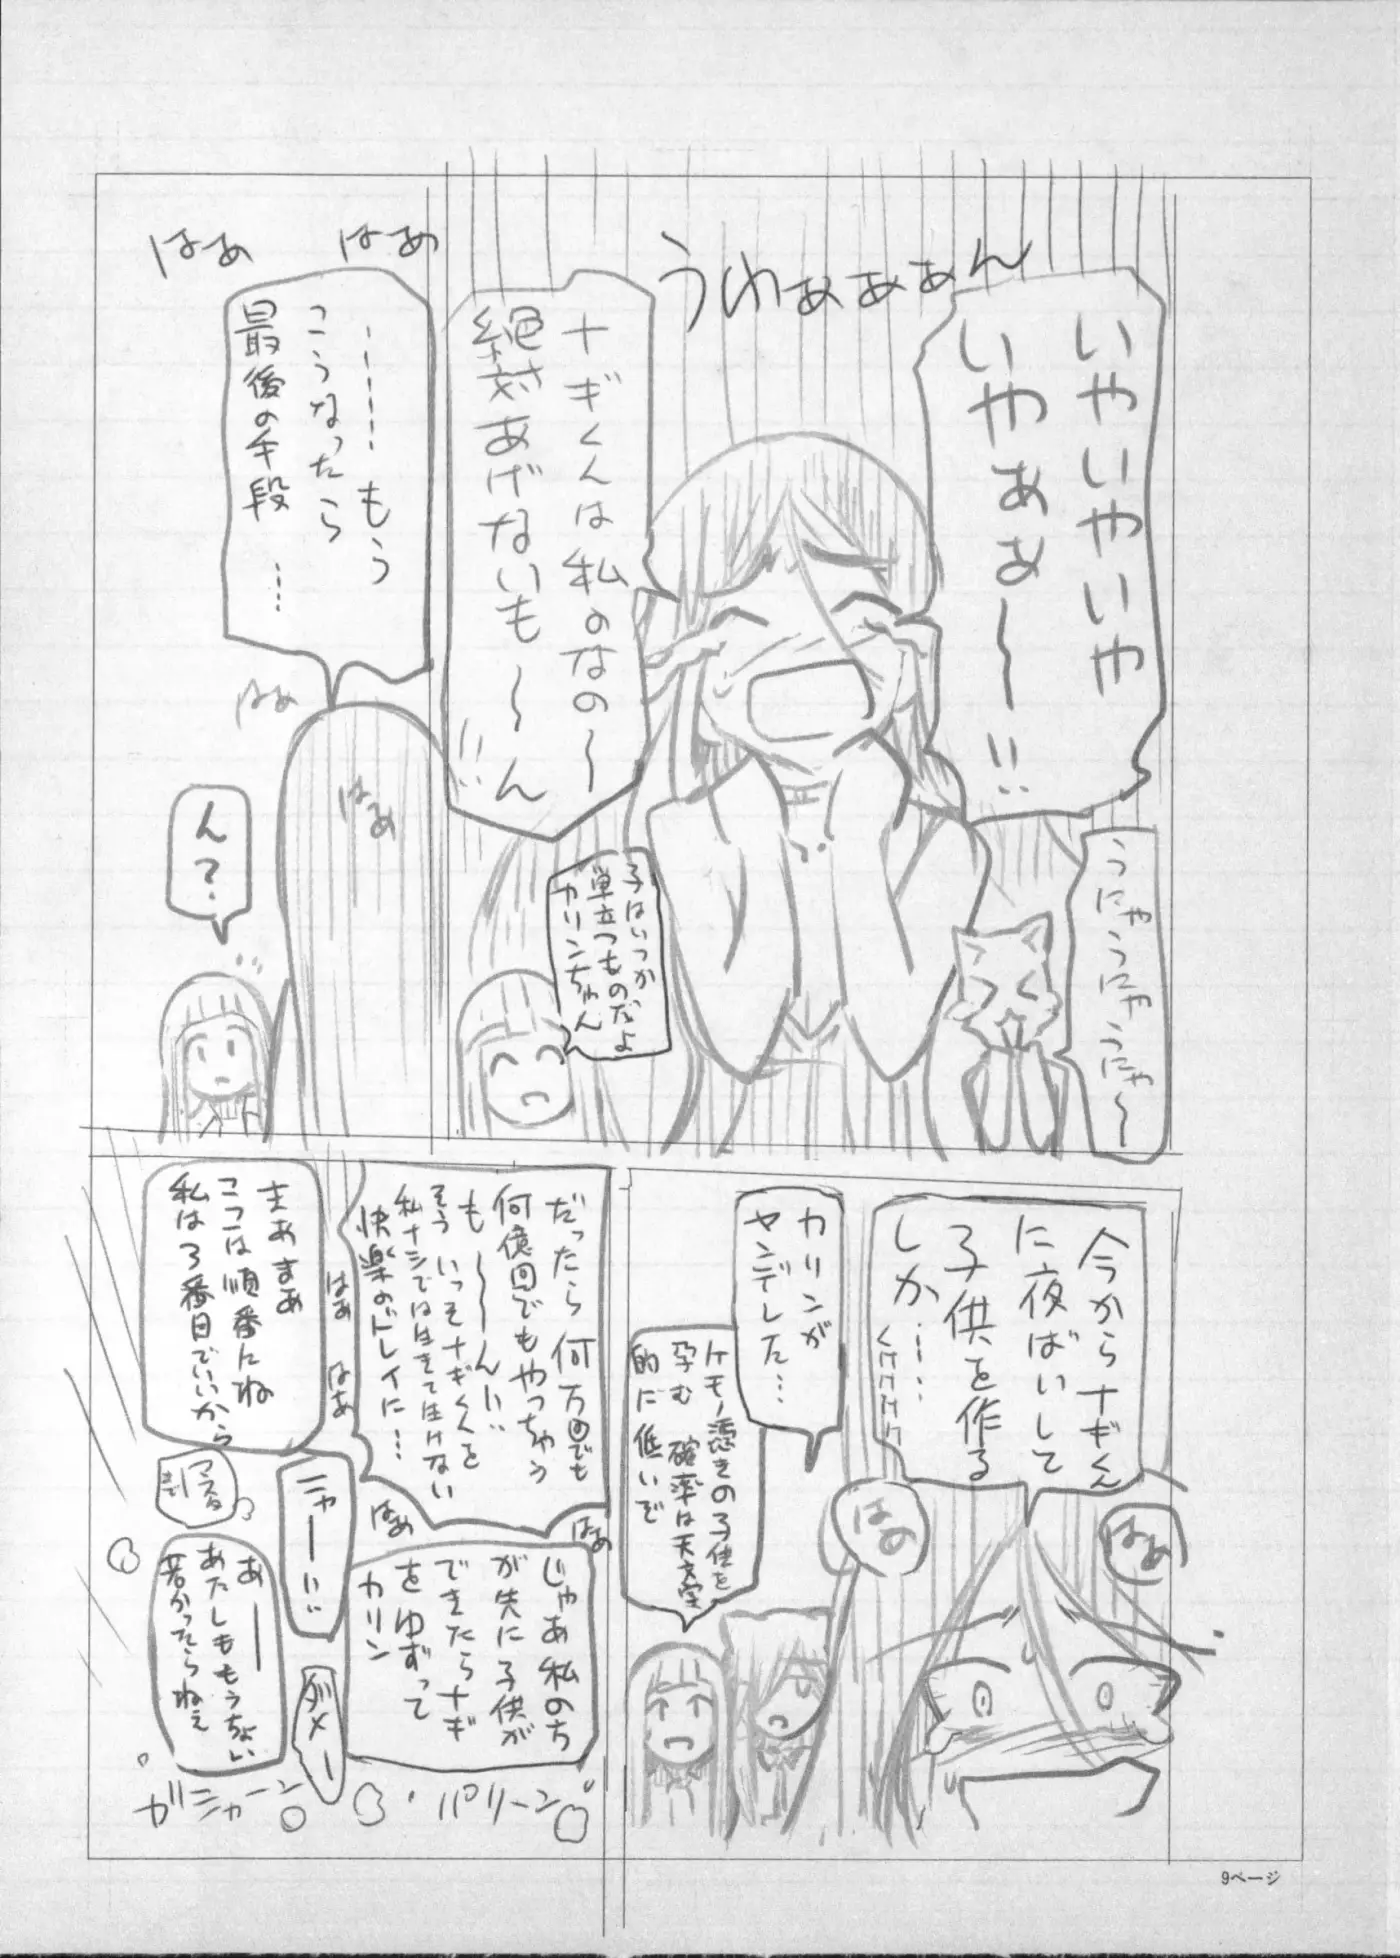 いやいやいや
いやあぁ～!!
うわぁぁぁぁん
うにゃうにゃうにゃ～
ナギくんは私のなの～
絶対あげないも～ん!!
子はいつか
巣立つものだよ
カリンちゃん
はあ
はあ
……もう
こうなったら
最後の手段…
はぁ
はあ
ん?
今からナギくん
に夜ばいして
子供を作る
しか……
くけけけけ
はぁ
はぁ
カリンが
ヤンデレした…
ケモノ憑きの子供を
孕む確率は天文学
的に低いぞ
だったら何万回でも
何億回でもやっちゃう
も～～ん!!
そういっそナギくんを
私ナシでは生きて生けない
快楽のドレイに…
はぁ
はぁ
はぁ
はぁ
じゃあ私のち
が先に子供が
できたらナギ
をゆずって
カリン
まあまあ
ここは順番にね
私は3番目でいいから
ニャー!!
ダメー
あ――
あたしももうちょい
若かったらねぇ
ガシャーン
パリーン
9ページ